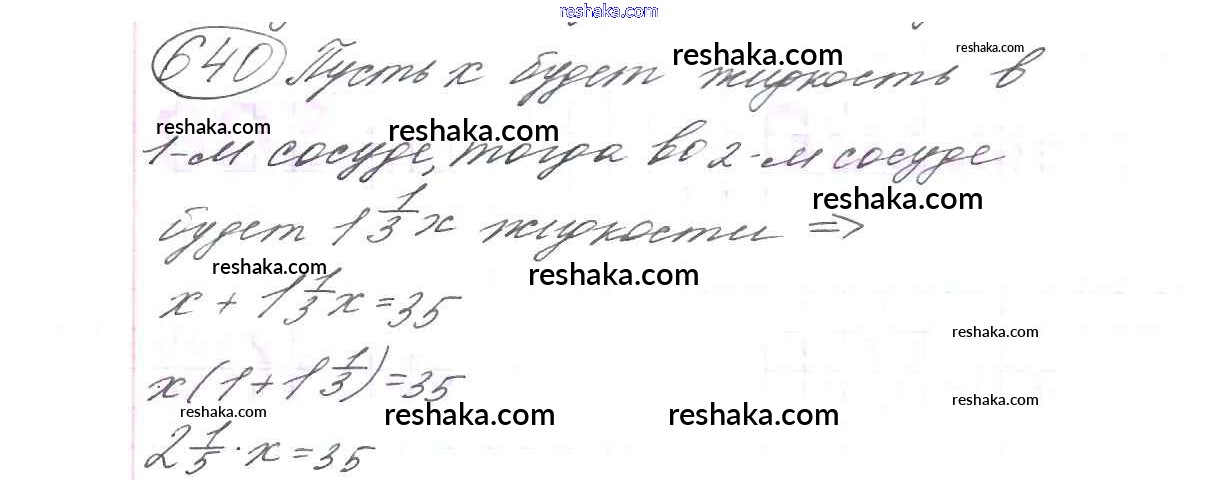 reshaka.com
640 Пусть x будет жидкость в
reshaka.com reshaka.com
reshaka.com reshaka.com
1-м сосуде, тогда во 2-м сосуде
reshaka.com
будет 1 1/3 x жидкости =>
reshaka.com reshaka.com
x + 1 1/3 x = 35
reshaka.com
x(1 + 1 1/3) = 35
reshaka.com reshaka.com reshaka.com reshaka.com
2 1/5 · x = 35